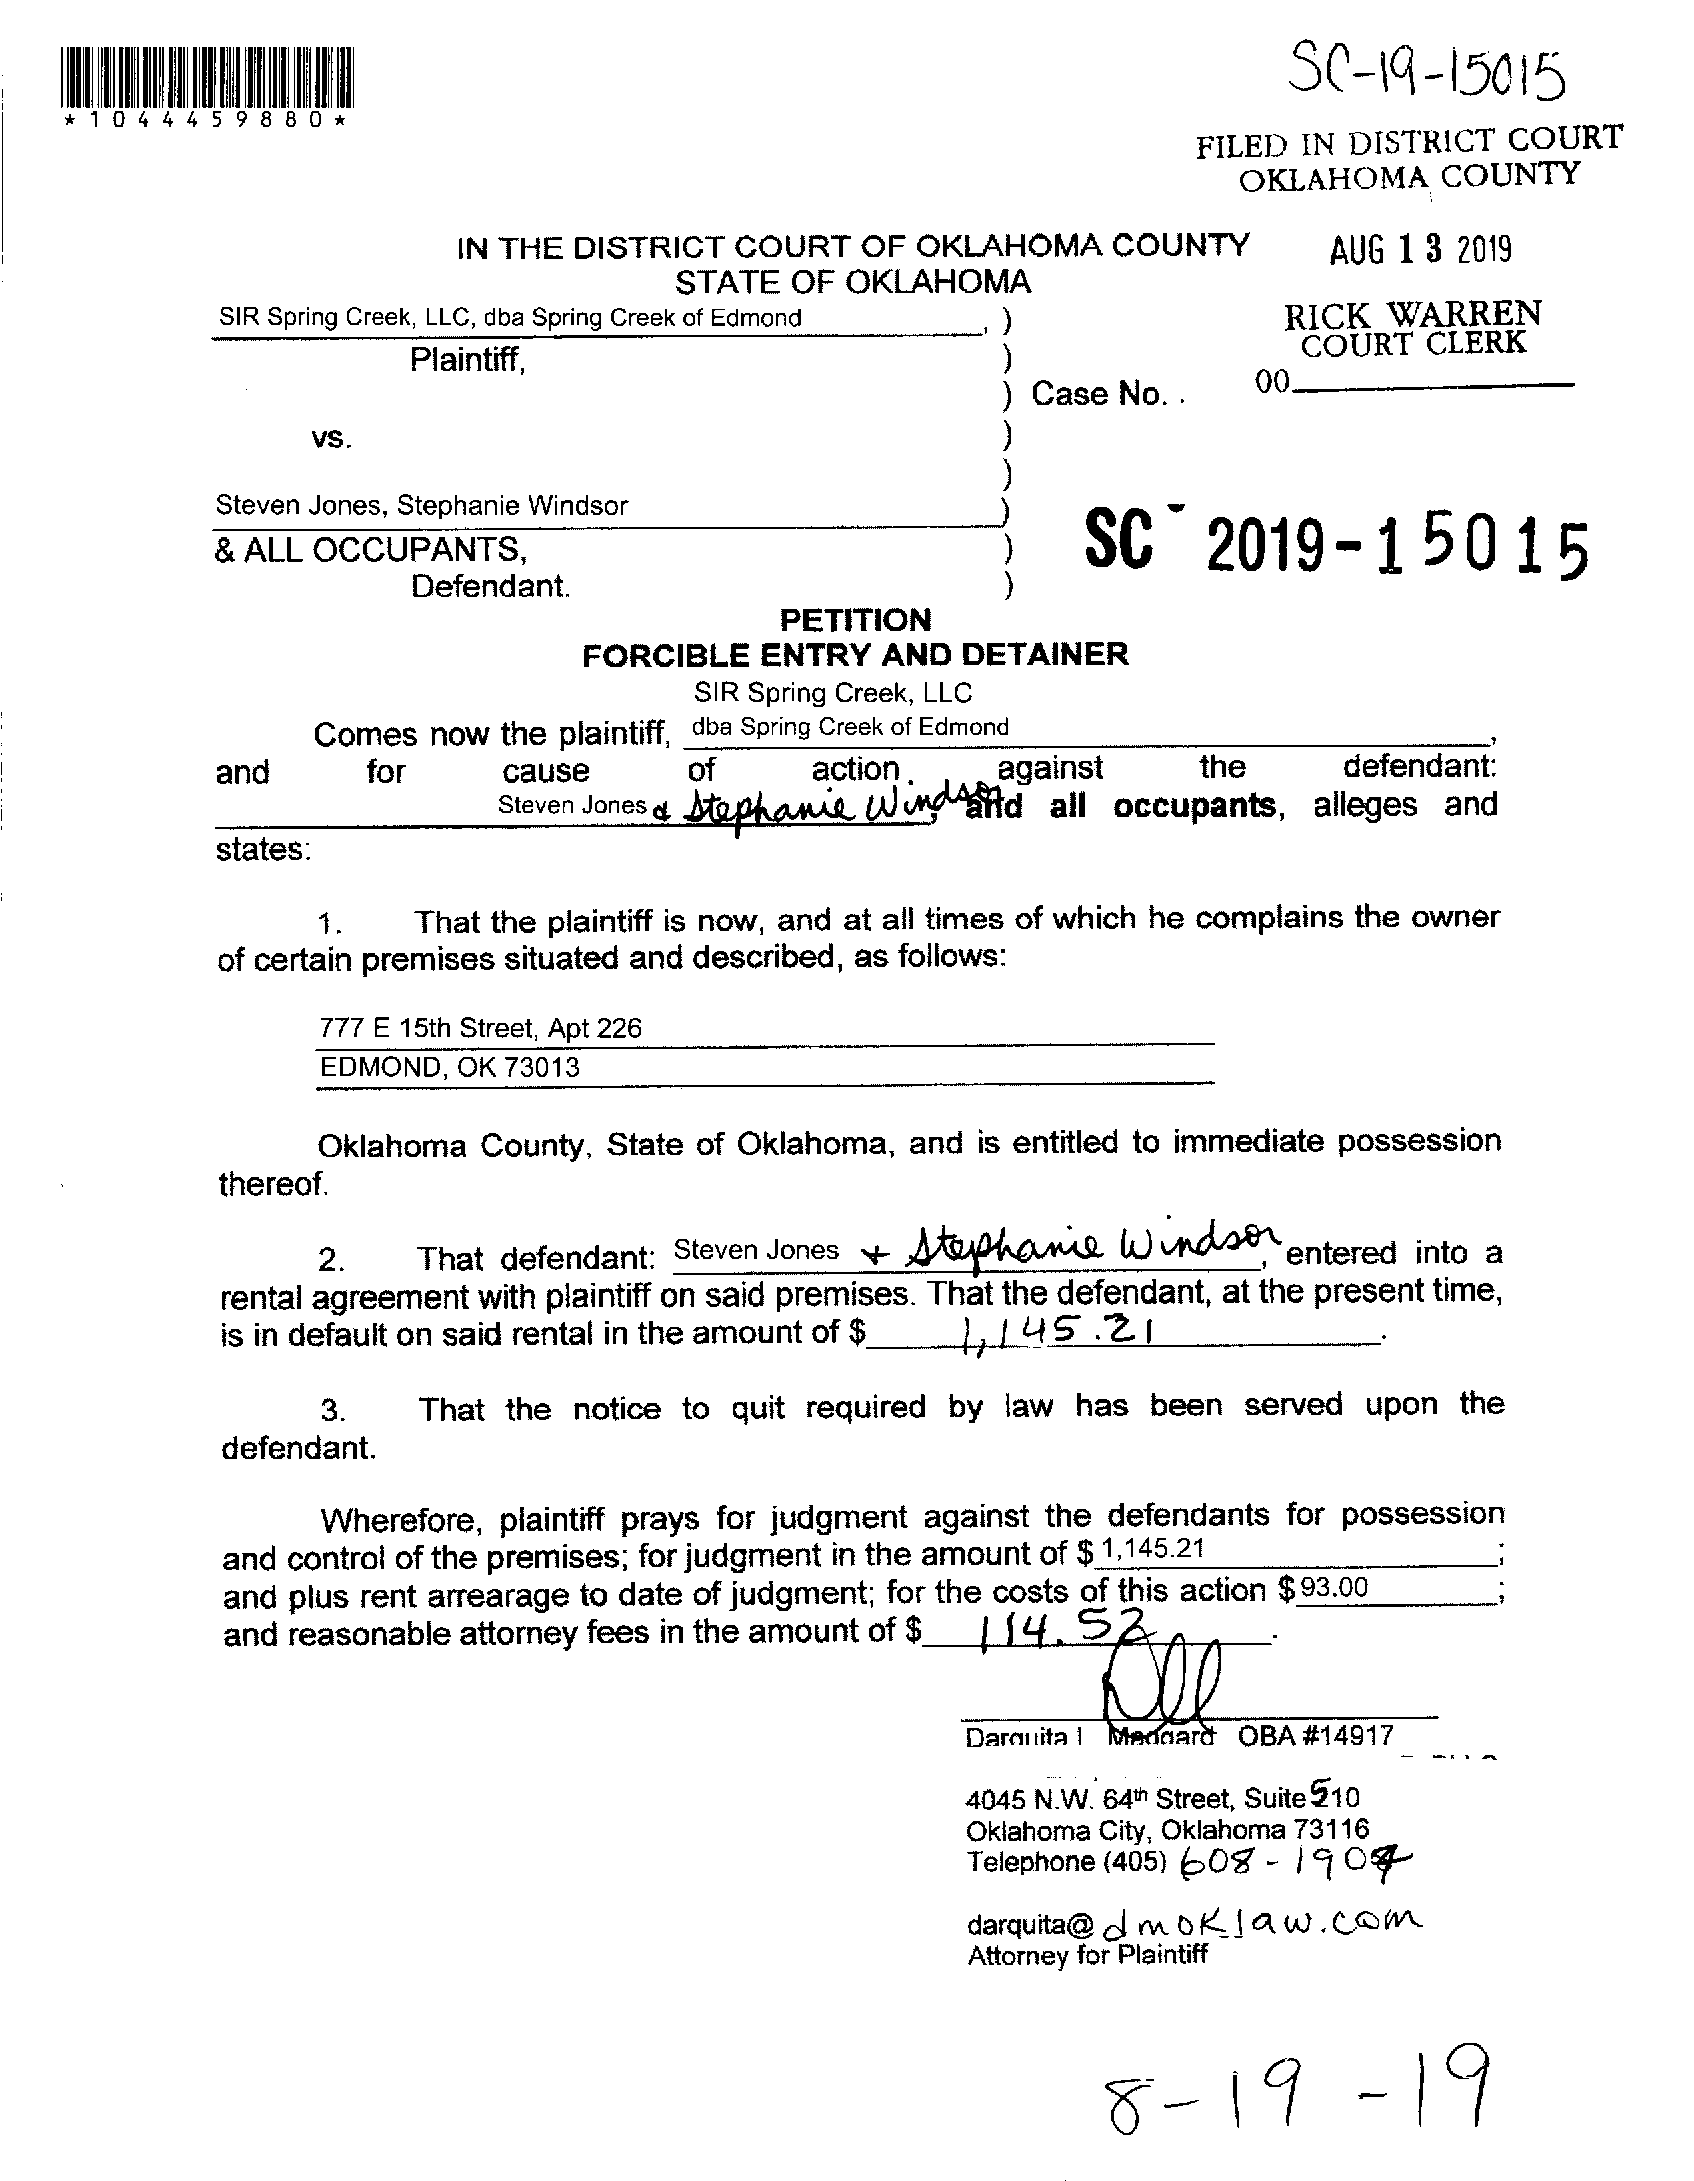 SC-19-15015
*1044459880*
FILED IN DISTRICT COURT
OKLAHOMA COUNTY
IN THE DISTRICT COURT OF OKLAHOMA COUNTY
AUG 13 2019
STATE OF OKLAHOMA
SIR Spring Creek, LLC, dba Spring Creek of Edmond , )
RICK WARREN
COURT CLERK
Plaintiff, )
) Case No. . 00
vs. )
)
Steven Jones, Stephanie Windsor )
& ALL OCCUPANTS, )
SC- 2019-15015
Defendant. )
PETITION
FORCIBLE ENTRY AND DETAINER
SIR Spring Creek, LLC
Comes now the plaintiff, dba Spring Creek of Edmond ,
and for cause of action. against the defendant:
Steven Jones & Stephanie Windsor, and all occupants, alleges and
states:
1. That the plaintiff is now, and at all times of which he complains the owner
of certain premises situated and described, as follows:
777 E 15th Street, Apt 226
EDMOND, OK 73013
Oklahoma County, State of Oklahoma, and is entitled to immediate possession
thereof.
2. That defendant: Steven Jones + Stephanie Windsor, entered into a
rental agreement with plaintiff on said premises. That the defendant, at the present time,
is in default on said rental in the amount of $ 1,145.21 .
3. That the notice to quit required by law has been served upon the
defendant.
Wherefore, plaintiff prays for judgment against the defendants for possession
and control of the premises; for judgment in the amount of $ 1,145.21 ;
and plus rent arrearage to date of judgment; for the costs of this action $ 93.00 ;
and reasonable attorney fees in the amount of $ 114.52 .
OBA #14917
4045 N.W. 64th Street, Suite 510
Oklahoma City, Oklahoma 73116
Telephone (405) 608-190
darquita@dmoklaw.com
Attorney for Plaintiff
8-19-19